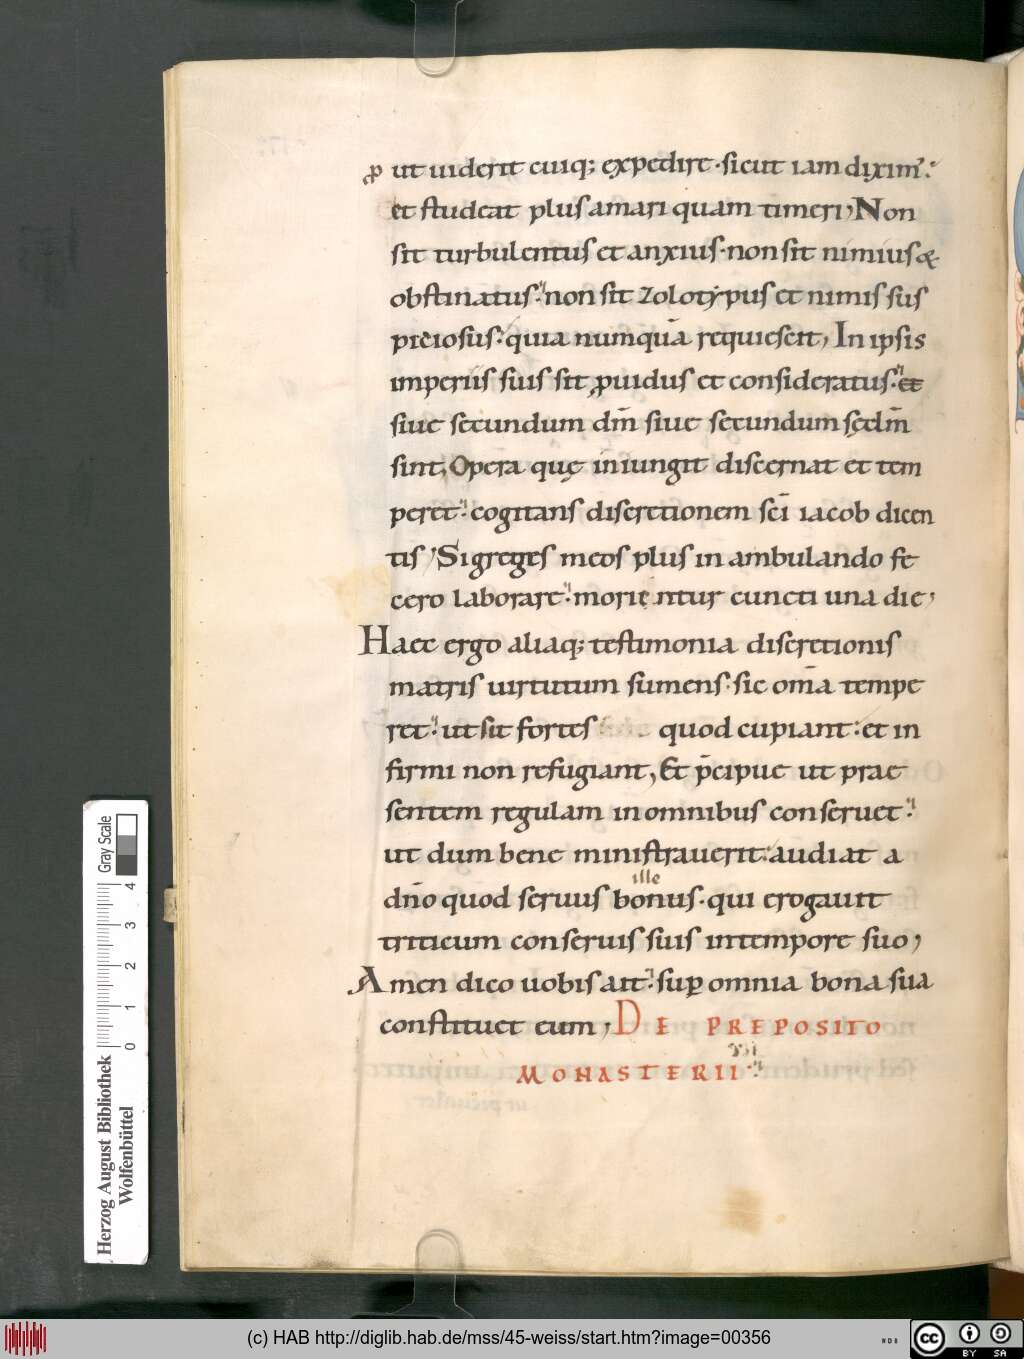 ꝓut uiderit cuiq; expedire · sicut iam diximꝰ.
et studeat plus amari quam timeri, Non
sit turbulentus et anxius · non sit nimius &
obstinatus. non sit zolotypus et nimis sus
piciosus. quia numquā requiescit, In ipsis
imperiis suis sit ꝓuidus et consideratus. Et
siue secundum dm̄ siue secundum sęclm̄
sint, Opera quę iniungit discernat et tem
peret. cogitans discretionem sc̄i iacob dicen
tis, Si greges meos plus in ambulando fe
cero laborare. morientur cuncti una die,
Haec ergo aliaq; testimonia discretionis
matris uirtutum sumens · sic om̄a tempe
ret. ut sit fortes quod cupiant. et in
firmi non refugiant, Et p̄cipue ut prae
sentem regulam in omnibus conseruet.
ut dum bene ministrauerit. audiat a
ille
dn̄o quod seruus bonus · qui erogauit
triticum conseruis suis in tempore suo,
Amen dico uobis ait. suꝑ omnia bona sua
constituet eum, DE PREPOSITO
MONASTERII
Herzog August Bibliothek
Wolfenbüttel
0 1 2 3 4
Gray Scale
(c) HAB http://diglib.hab.de/mss/45-weiss/start.htm?image=00356
WDB
cc BY SA